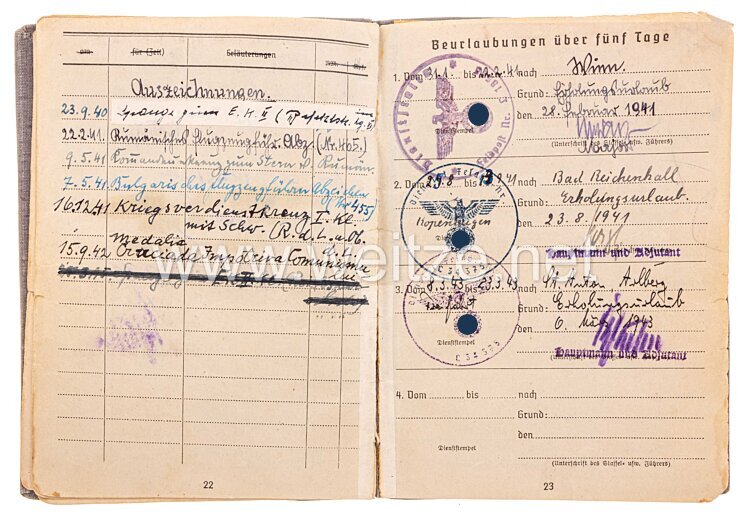 Auszeichnungen.
am
für (Zeit)
Erläuterungen
23.9.40 Spange zum E.K. II
22.2.41. Rumänisches Flugzeugführ. Abz. (Nr. 405.)
9.5.41 Komandeurkreuz zum Stern v. Rumän.
7.5.41 Bulgarisches Flugzeugführer Abzeichen
(Nr 455)
16.12.41 Kriegsverdienstkreuz I. Kl.
mit Schw. (R.d.L. u. Ob.
Medalia
15.9.42 Cruciada Impotriva Comunismu
22
www.weitze.net
Beurlaubungen über fünf Tage
1. Vom 31.1. bis 41 nach Wien
Grund: Erholungsurlaub
den 28. Februar 1941
Dienststempel
(Unterschrift des Staffel- usw. Führers)
2. Vom 25.8 bis 13.9.41 nach Bad Reichenhall
Grund: Erholungsurlaub.
den 23.8.1941
Hauptmann und Adjutant
3. Vom 8.3.43 bis 23.3.43 nach St. Anton Arlberg
Grund: Erholungsurlaub
den 6. März 1943
Dienststempel
Hauptmann und Adjutant
4. Vom bis nach
Grund:
den
Dienststempel
(Unterschrift des Staffel- usw. Führers)
23